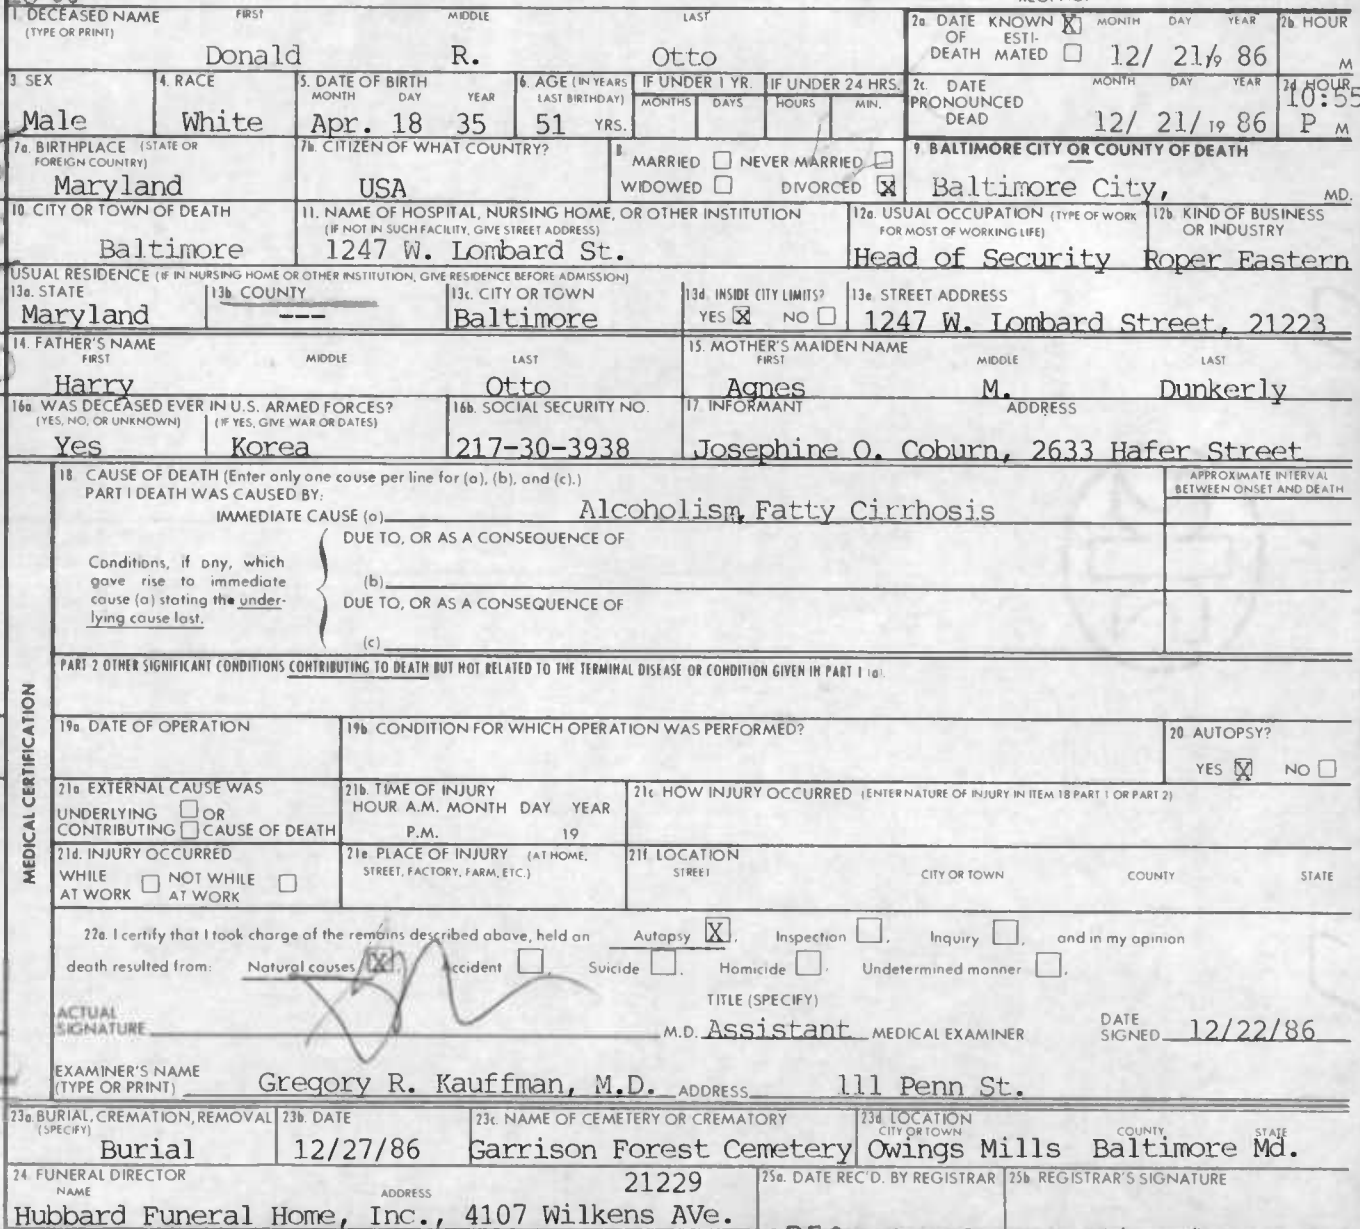 1. DECEASED NAME FIRST MIDDLE LAST
(TYPE OR PRINT)
Donald R. Otto
2a. DATE OF DEATH KNOWN [X] ESTIMATED [ ] MONTH DAY YEAR
12/ 21/19 86
2b. HOUR
M
3 SEX
Male
4. RACE
White
5. DATE OF BIRTH
MONTH DAY YEAR
Apr. 18 35
6. AGE (IN YEARS LAST BIRTHDAY)
51 YRS.
IF UNDER 1 YR.
MONTHS DAYS
IF UNDER 24 HRS.
HOURS MIN.
2c. DATE PRONOUNCED DEAD MONTH DAY YEAR
12/ 21/ 19 86
2d HOUR
10:55
P M
7a. BIRTHPLACE (STATE OR FOREIGN COUNTRY)
Maryland
7b. CITIZEN OF WHAT COUNTRY?
USA
8
MARRIED [ ] NEVER MARRIED [ ]
WIDOWED [ ] DIVORCED [X]
9. BALTIMORE CITY OR COUNTY OF DEATH
Baltimore City, MD.
10. CITY OR TOWN OF DEATH
Baltimore
11. NAME OF HOSPITAL, NURSING HOME, OR OTHER INSTITUTION
(IF NOT IN SUCH FACILITY, GIVE STREET ADDRESS)
1247 W. Lombard St.
12a. USUAL OCCUPATION (TYPE OF WORK FOR MOST OF WORKING LIFE)
Head of Security
12b. KIND OF BUSINESS OR INDUSTRY
Roper Eastern
USUAL RESIDENCE (IF IN NURSING HOME OR OTHER INSTITUTION, GIVE RESIDENCE BEFORE ADMISSION)
13a. STATE
Maryland
13b COUNTY
---
13c. CITY OR TOWN
Baltimore
13d. INSIDE CITY LIMITS?
YES [X] NO [ ]
13e STREET ADDRESS
1247 W. Lombard Street, 21223
14. FATHER'S NAME
FIRST MIDDLE LAST
Harry Otto
15. MOTHER'S MAIDEN NAME
FIRST MIDDLE LAST
Agnes M. Dunkerly
16a. WAS DECEASED EVER IN U.S. ARMED FORCES?
(YES, NO, OR UNKNOWN) (IF YES, GIVE WAR OR DATES)
Yes Korea
16b. SOCIAL SECURITY NO.
217-30-3938
17. INFORMANT ADDRESS
Josephine O. Coburn, 2633 Hafer Street
MEDICAL CERTIFICATION
18 CAUSE OF DEATH (Enter only one cause per line for (a), (b), and (c).)
PART I DEATH WAS CAUSED BY:
APPROXIMATE INTERVAL
BETWEEN ONSET AND DEATH
IMMEDIATE CAUSE (a) Alcoholism, Fatty Cirrhosis
DUE TO, OR AS A CONSEQUENCE OF
Conditions, if any, which
gave rise to immediate
cause (a) stating the under-
lying cause last.
(b)
DUE TO, OR AS A CONSEQUENCE OF
(c)
PART 2 OTHER SIGNIFICANT CONDITIONS CONTRIBUTING TO DEATH BUT NOT RELATED TO THE TERMINAL DISEASE OR CONDITION GIVEN IN PART I (a).
19a. DATE OF OPERATION
19b CONDITION FOR WHICH OPERATION WAS PERFORMED?
20. AUTOPSY?
YES [X] NO [ ]
21a EXTERNAL CAUSE WAS
UNDERLYING [ ] OR
CONTRIBUTING [ ] CAUSE OF DEATH
21b. TIME OF INJURY
HOUR A.M. MONTH DAY YEAR
P.M. 19
21c HOW INJURY OCCURRED (ENTER NATURE OF INJURY IN ITEM 18 PART 1 OR PART 2)
21d. INJURY OCCURRED
WHILE AT WORK [ ] NOT WHILE AT WORK [ ]
21e PLACE OF INJURY (AT HOME, STREET, FACTORY, FARM, ETC.)
21f. LOCATION
STREET CITY OR TOWN COUNTY STATE
22a. I certify that I took charge of the remains described above, held an Autopsy [X], Inspection [ ], Inquiry [ ], and in my opinion
death resulted from: Natural causes [X], Accident [ ], Suicide [ ], Homicide [ ], Undetermined manner [ ],
TITLE (SPECIFY)
ACTUAL SIGNATURE M.D. Assistant MEDICAL EXAMINER
DATE SIGNED 12/22/86
EXAMINER'S NAME
(TYPE OR PRINT) Gregory R. Kauffman, M.D. ADDRESS 111 Penn St.
23a. BURIAL, CREMATION, REMOVAL (SPECIFY)
Burial
23b. DATE
12/27/86
23c. NAME OF CEMETERY OR CREMATORY
Garrison Forest Cemetery
23d LOCATION
CITY OR TOWN COUNTY STATE
Owings Mills Baltimore Md.
24. FUNERAL DIRECTOR
NAME ADDRESS
21229
Hubbard Funeral Home, Inc., 4107 Wilkens AVe.
25a. DATE REC'D. BY REGISTRAR
25b. REGISTRAR'S SIGNATURE